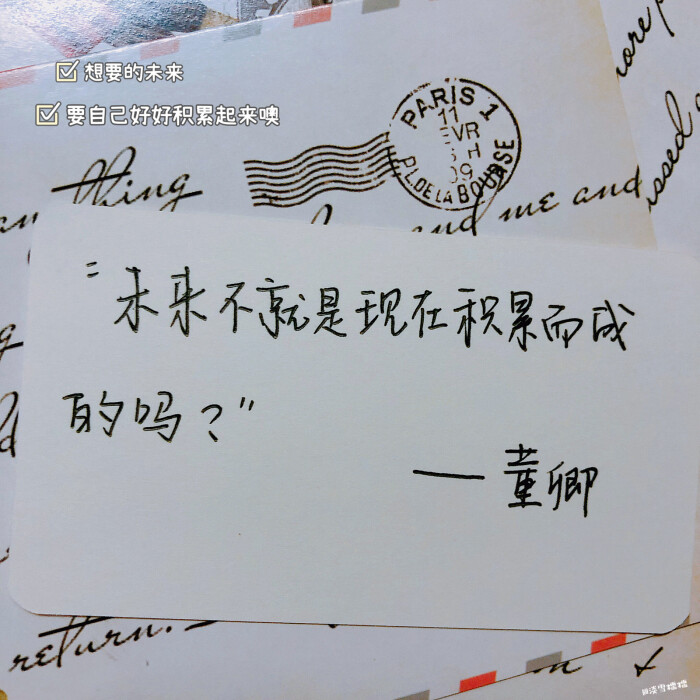 想要的未来
要自己好好积累起来噢
PARIS 1
11
EVR
09
PL.DE LA BOURSE
thing
and me and
"未来不就是现在积累而成
的吗？"
——董卿
return.